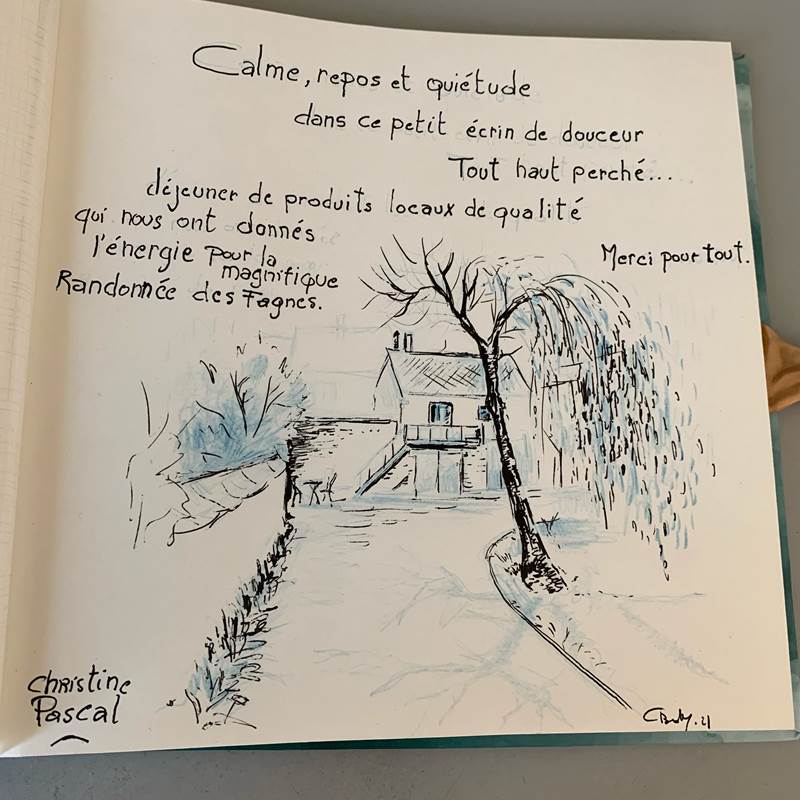 Calme, repos et quiétude
dans ce petit écrin de douceur
Tout haut perché...
déjeuner de produits locaux de qualité
qui nous ont donnés
l'énergie pour la
magnifique
Randonnée des Fagnes.
Merci pour tout.
Christine
Pascal